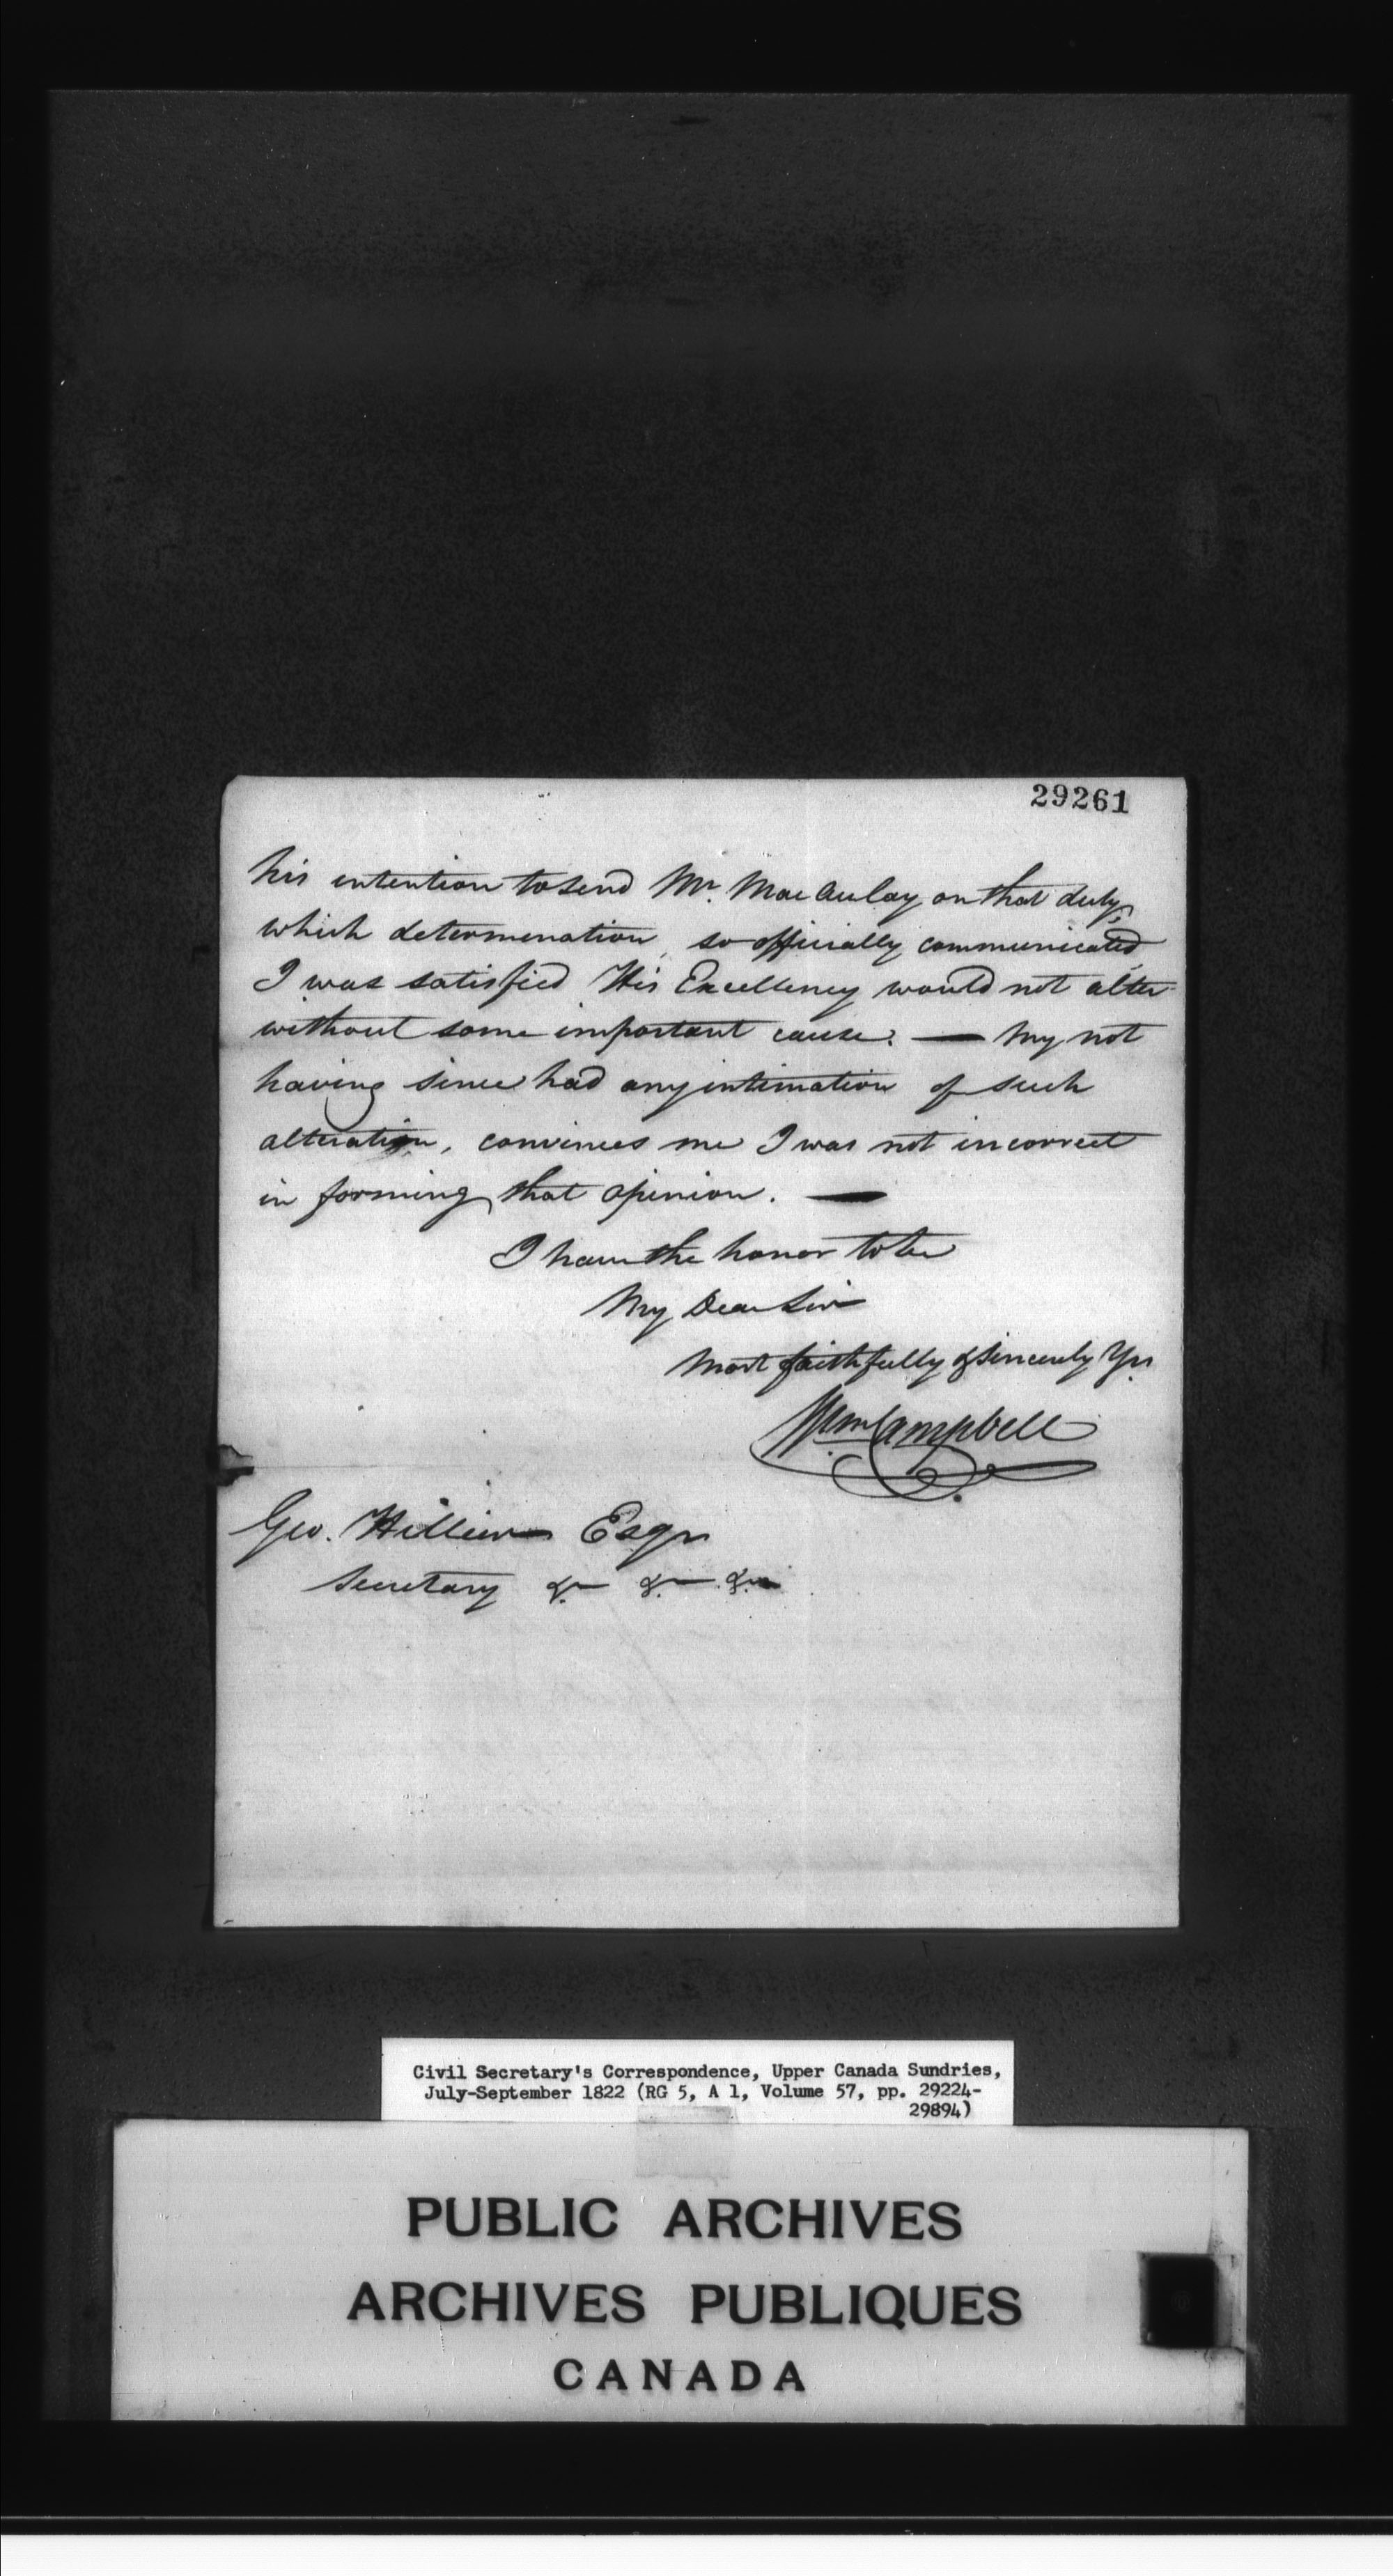 29261
his intention to send Mr. MacAulay on that duty,
which determination, so officially communicated,
I was satisfied His Excellency would not alter
without some important cause. — My not
having since had any intimation of such
alteration, convinces me I was not incorrect
in forming that opinion. —
I have the honor to be
My Dear Sir
Most faithfully & sincerely Yrs.
Wm. Campbell
Geo. Hillier Esqr
Secretary &c &c &c
Civil Secretary's Correspondence, Upper Canada Sundries,
July-September 1822 (RG 5, A 1, Volume 57, pp. 29224-
29894)
PUBLIC ARCHIVES
ARCHIVES PUBLIQUES
CANADA